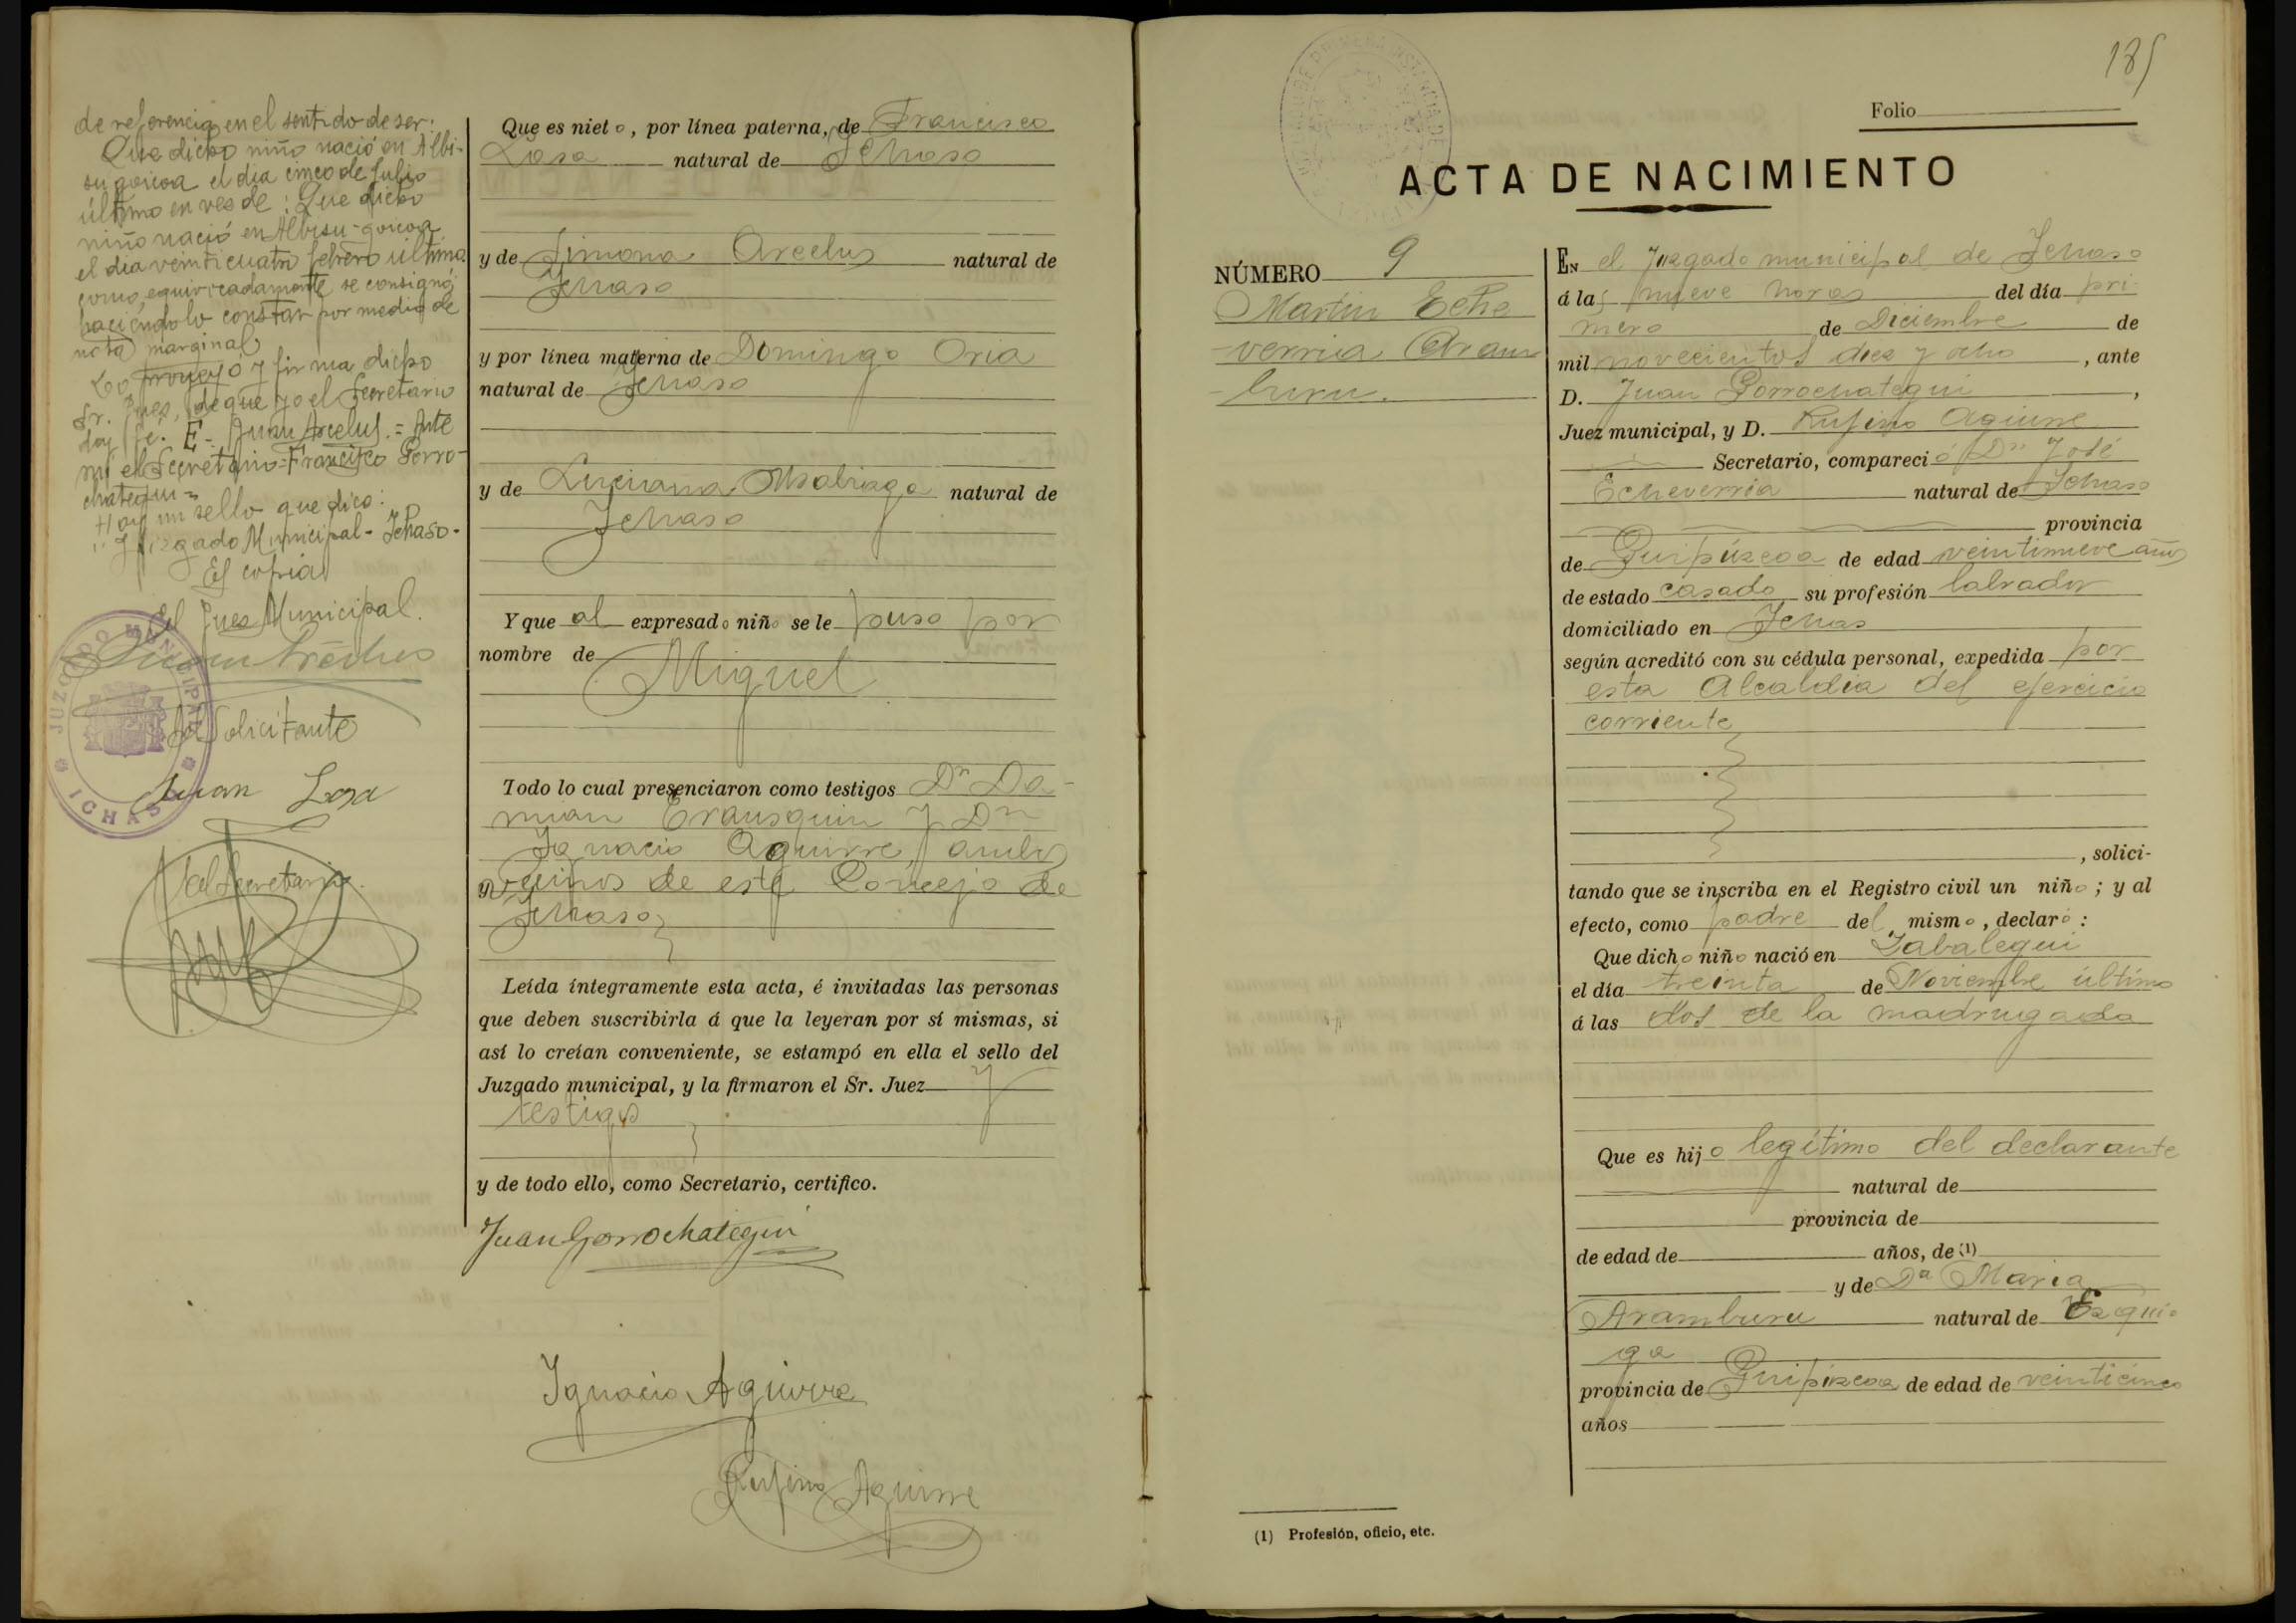 de referencia en el sentido de ser:
Que dicho niño nació en Albi-
su goicoa el dia cinco de Julio
último en ves de: Que dicho
niño nació en Albisu-goicoa
el dia veinticuatro febrero último
como equivocadamente se consignó,
haciéndolo constar por medio de
nota marginal
Lo proveyó y firma dicho
Sr. Jues, de que yo el Secretario
doy fé. E- Juan Arcelus.= Ante
mi el Secretario=Francisco Gorro-
chategui=
Hay un sello que dice:
"Juzgado Municipal- Ichaso-
Es copia
El Jues Municipal.
Juan Arcelus
El Solicitante
Juan Lasa
El Secretario.
JUZGADO MUNICIPAL
ICHASO
Que es nieto, por línea paterna, de Francisco
Lasa natural de Ichaso
y de Simona Arcelus natural de
Ichaso
y por línea materna de Domingo Oria
natural de Ichaso
y de Luciana natural de
Ichaso
Y que al expresado niño se le puso por
nombre de
Miguel
Todo lo cual presenciaron como testigos Dn Da-
mian Erausquin y Dn
Ignacio Aguirre, ambos
vecinos de este Concejo de
Ichaso
Leída íntegramente esta acta, é invitadas las personas
que deben suscribirla á que la leyeran por sí mismas, si
así lo creían conveniente, se estampó en ella el sello del
Juzgado municipal, y la firmaron el Sr. Juez y
testigos
y de todo ello, como Secretario, certifico.
Juan Gorrochategui
Ignacio Aguirre
Rufino Aguirre
185
Folio
ACTA DE NACIMIENTO
NÚMERO 9
Martin Eche
-verria Aram
-buru.
EN el Juzgado municipal de Ichaso
á las nueve horas del día pri-
mero de Diciembre de
mil novecientos diez y ocho, ante
D. Juan Gorrochategui,
Juez municipal, y D. Rufino Aguirre
Secretario, compareció Dn José
Echeverria natural de Ichaso
provincia
de Guipúzcoa de edad veintinueve años
de estado casado su profesión labrador
domiciliado en Ichas
según acreditó con su cédula personal, expedida por
esta Alcaldia del ejercicio
corriente
, solici-
tando que se inscriba en el Registro civil un niño; y al
efecto, como padre del mismo, declaró:
Que dicho niño nació en Zabalegui
el día treinta de Noviembre último
á las dos de la madrugada
Que es hijo legítimo del declarante
natural de
provincia de
de edad de años, de (1)
y de Da Maria
Aramburu natural de Ezquio-
ga
provincia de Guipúzcoa de edad de veinticinco
años
(1) Profesión, oficio, etc.